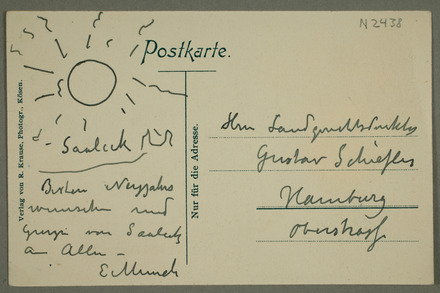 N2438
Postkarte.
Verlag von R. Krause, Photogr., Kösen.
Nur für die Adresse.
- Saaleck
Besten Neujahrs
wunschen und
von Saaleck
an Alle -
E Munch
Herrn Landgerichtsdirektor
Gustav Schiefler
Hamburg
Oberstrasse